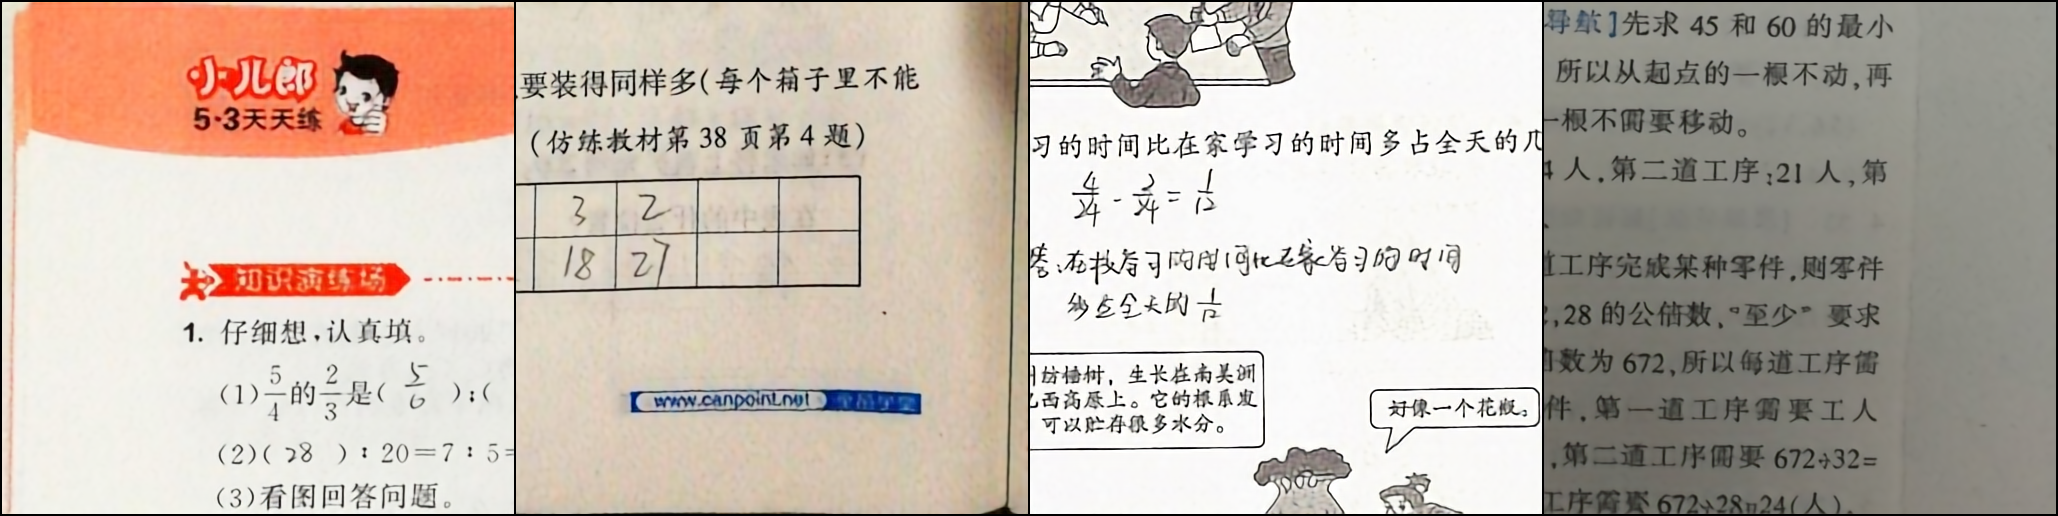 小儿郎
5·3天天练
知识演练场
1. 仔细想,认真填。
(1)5/4的2/3是( 5/6 );(
(2)( 28 ):20=7:5=
(3)看图回答问题。
要装得同样多(每个箱子里不能
(仿练教材第38页第4题)
3 2
18 27
www.canpoint.net
习的时间比在家学习的时间多占全天的几
4/24 - 2/24 = 1/12
答:在校学习的时间比在家学习的时间
多占全天的 1/12
纺锤树,生长在南美洲
西高原上。它的根系发
可以贮存很多水分。
好像一个花瓶。
导航]先求45和60的最小
所以从起点的一根不动,再
一根不需要移动。
4人,第二道工序:21人,第
道工序完成某种零件,则零件
,28的公倍数,“至少”要求
数为672,所以每道工序需
件,第一道工序需要工人
,第二道工序需要672÷32=
工序需要672÷28=24(人)。